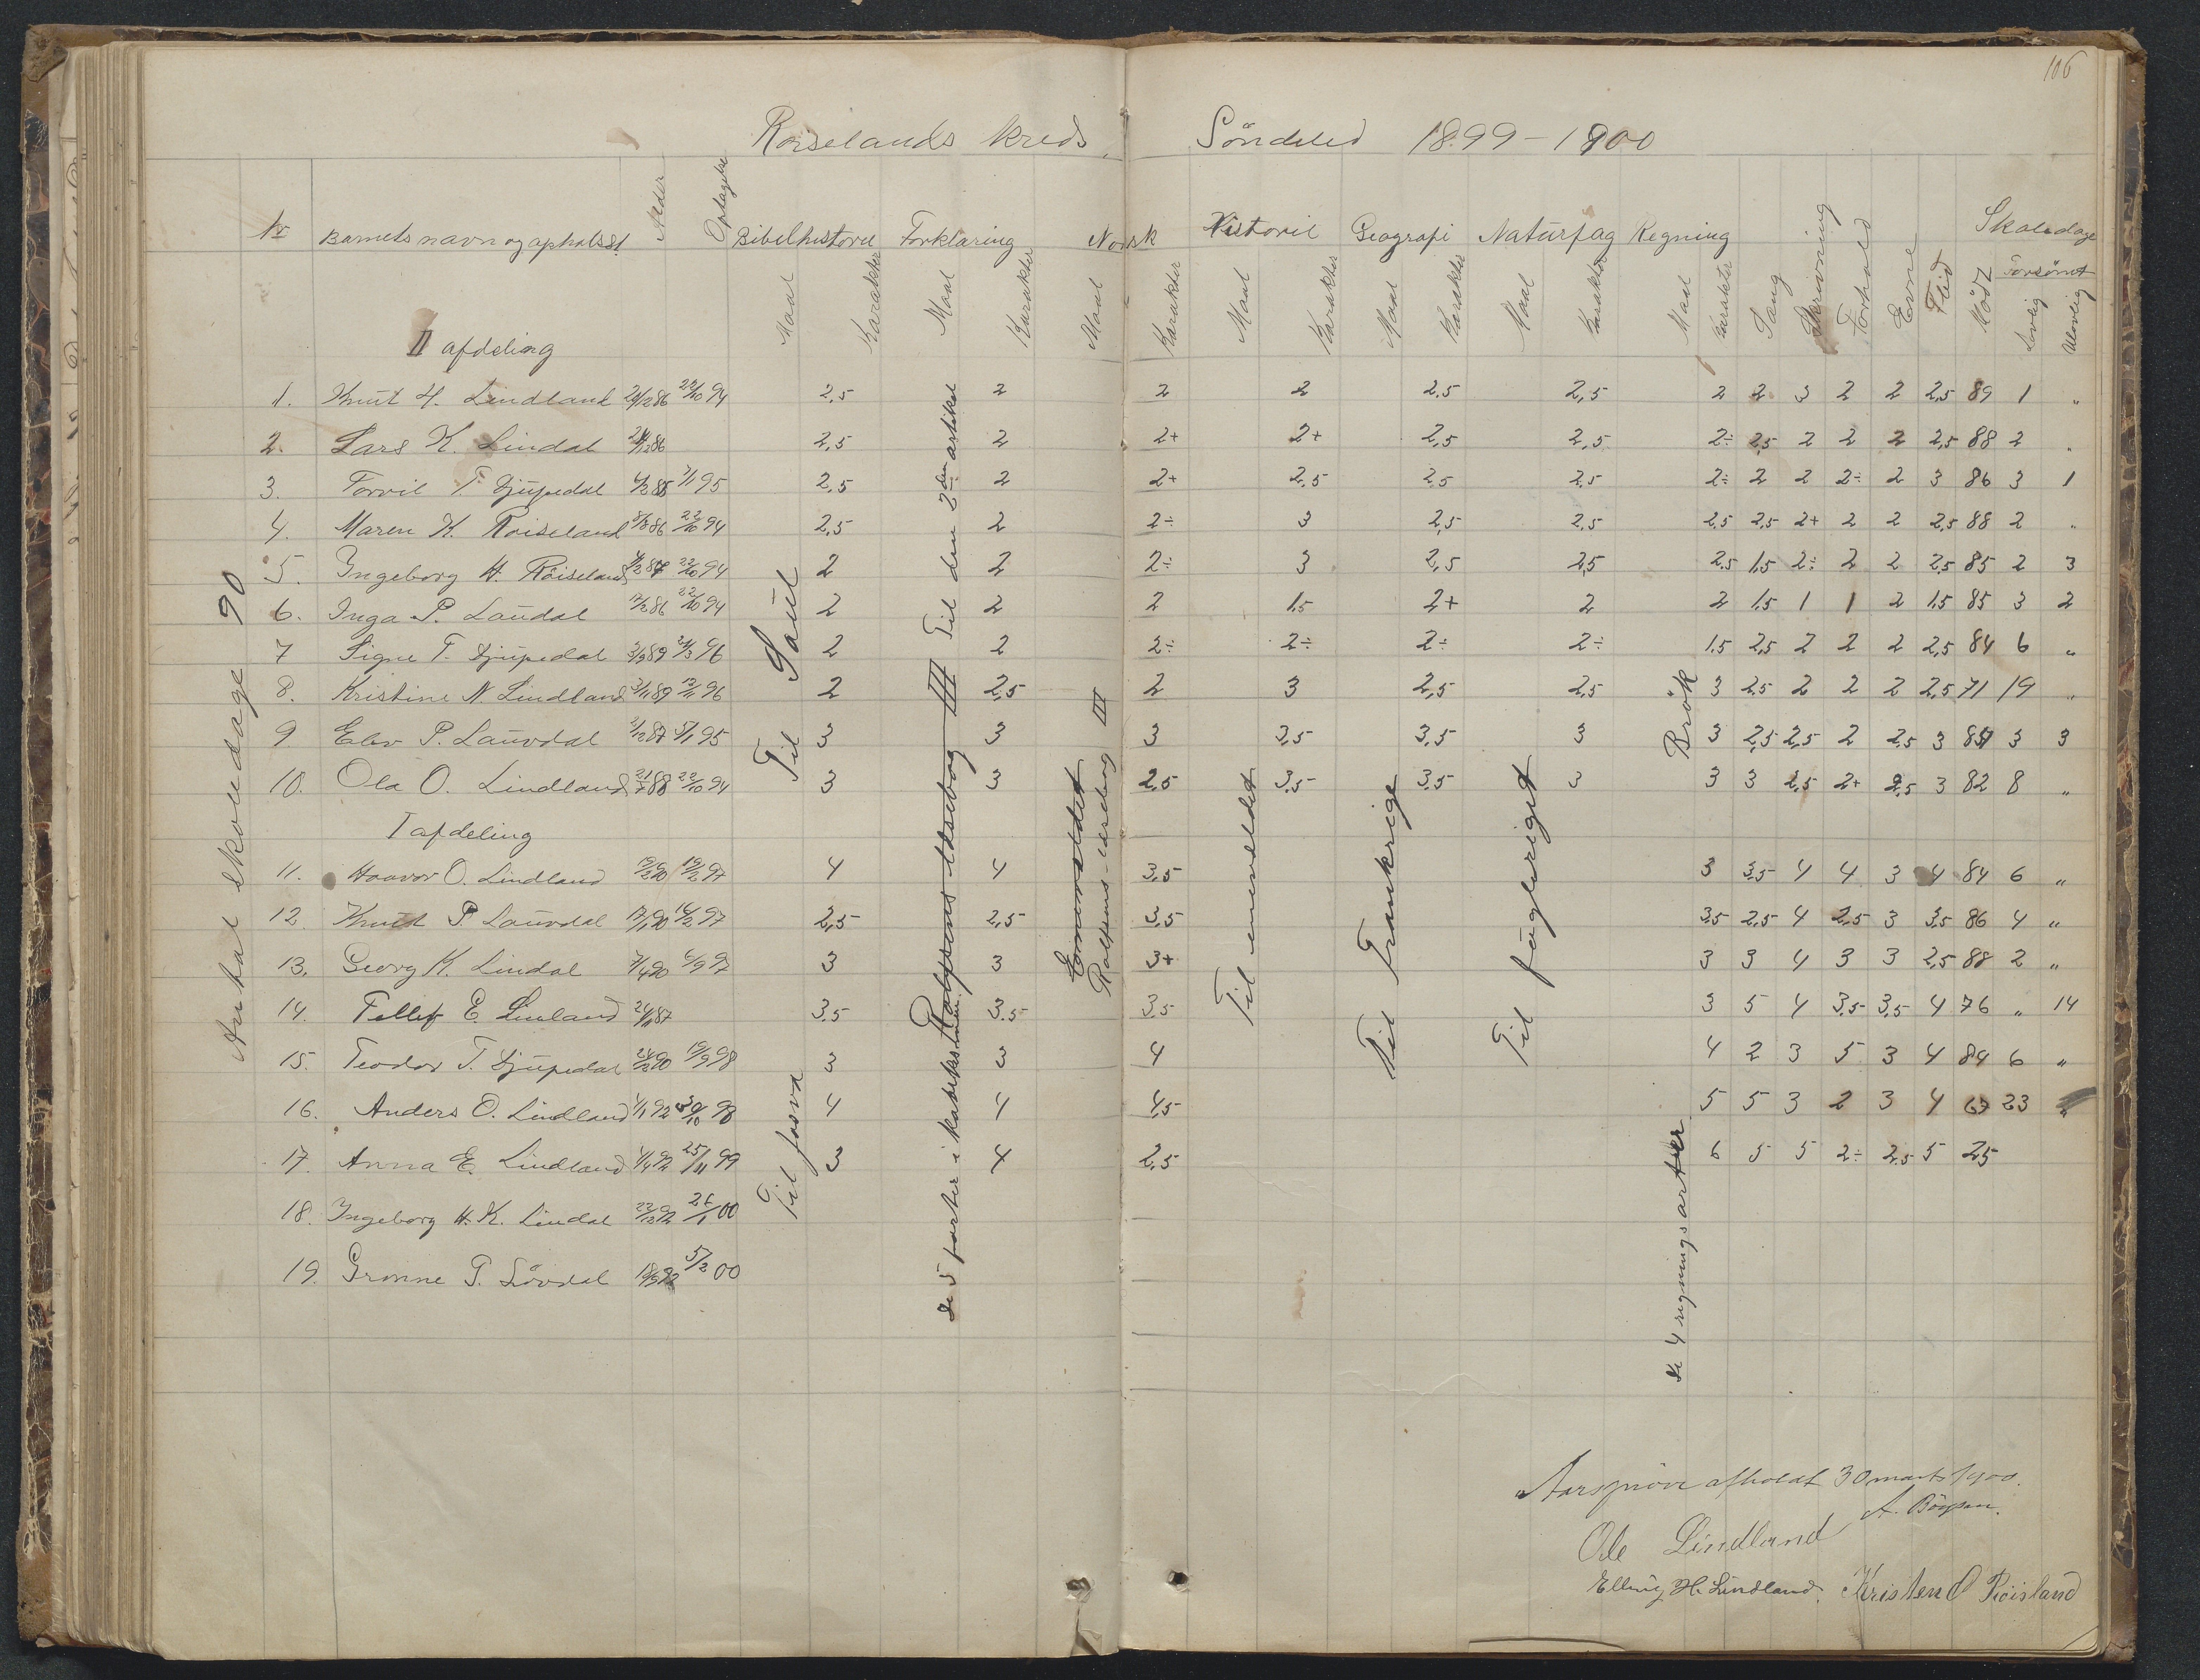 106
Roiselands kreds. Söndeled 1899-1900
Nr Barnets navn og opholdsst. Alder Optagelse Bibelhistorie Forklaring Norsk Historie Geografi Naturfag Regning Sang Skrivning Forhold Evne Flid Mödt Skoledage
Forsömt
Maal Karakter Maal Karakter Maal Karakter Maal Karakter Maal Karakter Maal Karakter Maal Karakter Lovlig Ulovlig
II afdeling
1. Knut H. Lindland 22/10 94 2,5 2 2 2 2.5 2,5 2 2 3 2 2 2,5 89 1 "
2. Lars K. Lindal 2,5 2 2+ 2+ 2,5 2,5 2÷ 2,5 2 2 2 2,5 88 2 "
3. Torvil T. Djupedal 95 2,5 2 2+ 2,5 2,5 2,5 2÷ 2 2 2÷ 2 3 86 3 1
4. Maren K. Roiseland 86 22/10 94 2,5 2 2÷ 3 2,5 2,5 2,5 2,5 2+ 2 2 2,5 88 2 "
5. Ingeborg H. Röiseland 22/10 94 2 2 2÷ 3 2,5 2,5 2.5 1,5 2÷ 2 2 2,5 85 2 3
6. Inga P. Laudal 86 22/10 94 2 2 2 1,5 2+ 2 2 1,5 1 1 2 1,5 85 3 2
7 Signe T. Djupedal 89 96 2 2 2÷ 2÷ 2÷ 2÷ 1,5 2,5 2 2 2 2,5 84 6 "
8. Kristine N. Lindland 89 96 2 2,5 2 3 2,5 2,5 3 2,5 2 2 2 2,5 71 19 "
9 Elev P. Lauvdal 87 95 3 3 3 3,5 3,5 3 3 2,5 2,5 2 2,5 3 3 3
10. Ola O. Lindland 88 22/10 94 3 3 2,5 3,5 3,5 3 3 3 2,5 2+ 2,5 3 82 8 "
I afdeling
11. Haavor O. Lindland 90 97 4 4 3,5 3 3,5 4 4 3 4 84 6 "
12. Knut P. Lauvdal 90 97 2,5 2,5 3,5 3,5 2,5 4 2,5 3 3,5 86 4 "
13. Georg K. Lindal 7/4 90 97 3 3 3+ 3 3 4 3 3 2,5 88 2 "
14. Tellef E. Linland 87 3.5 3.5 3.5 3 5 4 3,5 3,5 4 76 " 14
15. Teodor T. Djupedal 90 98 3 3 4 4 2 3 5 3 4 84 6 "
16. Anders O. Lindland 92 98 4 4 4,5 5 5 3 2 3 4 67 23 "
17. Anna E. Lindland 25/11 99 3 4 2,5 6 5 5 2÷ 2,5 5 25
18. Ingeborg H. K. Lindal 26/1 00
19. Gronne P. Lövdal 5/2 00
Antal skoledage 90
Til Saul
Til Josva
Til den 2den artikel
Rolfsens læsebog III
de 5 parter i katekismen.
Rolfsens læsebog III
Til enevældet
Til Frankrige
Til fugleriget
Brök
de 4 regningsarter
Aarspröve afholdt 30 marts 1900.
Ole Lindland
Elling H. Lindland. Kristen O Röisland